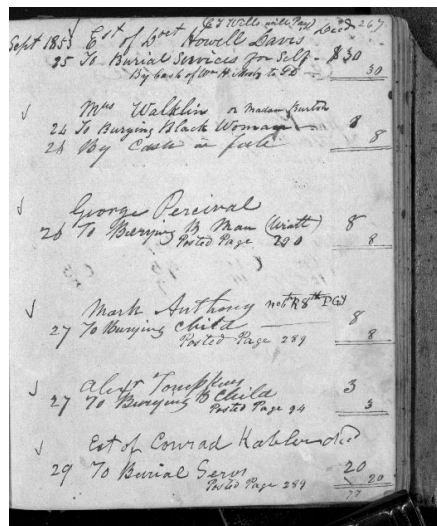 (C J Wills will Pay) 267
Sept 1853 Est of Howell Davis Decd
25 To Burial Services for Self - $30
By Cash of Wm H 30
Mrs Walklin or Madam Burton
24 To Burying Black Woman 8
28 By Cash in full 8
George Percival
26 To Burying B Man (Wiatt) 8
Posted Page 290 8
Mark Anthony
27 To Burying Child 8
Posted Page 289 8
Alexr Tompkins
27 To Burying B Child 3
Posted Page 94 3
Est of Conrad Kahler died
29 To Burial Servs 20
Posted Page 289 20
77